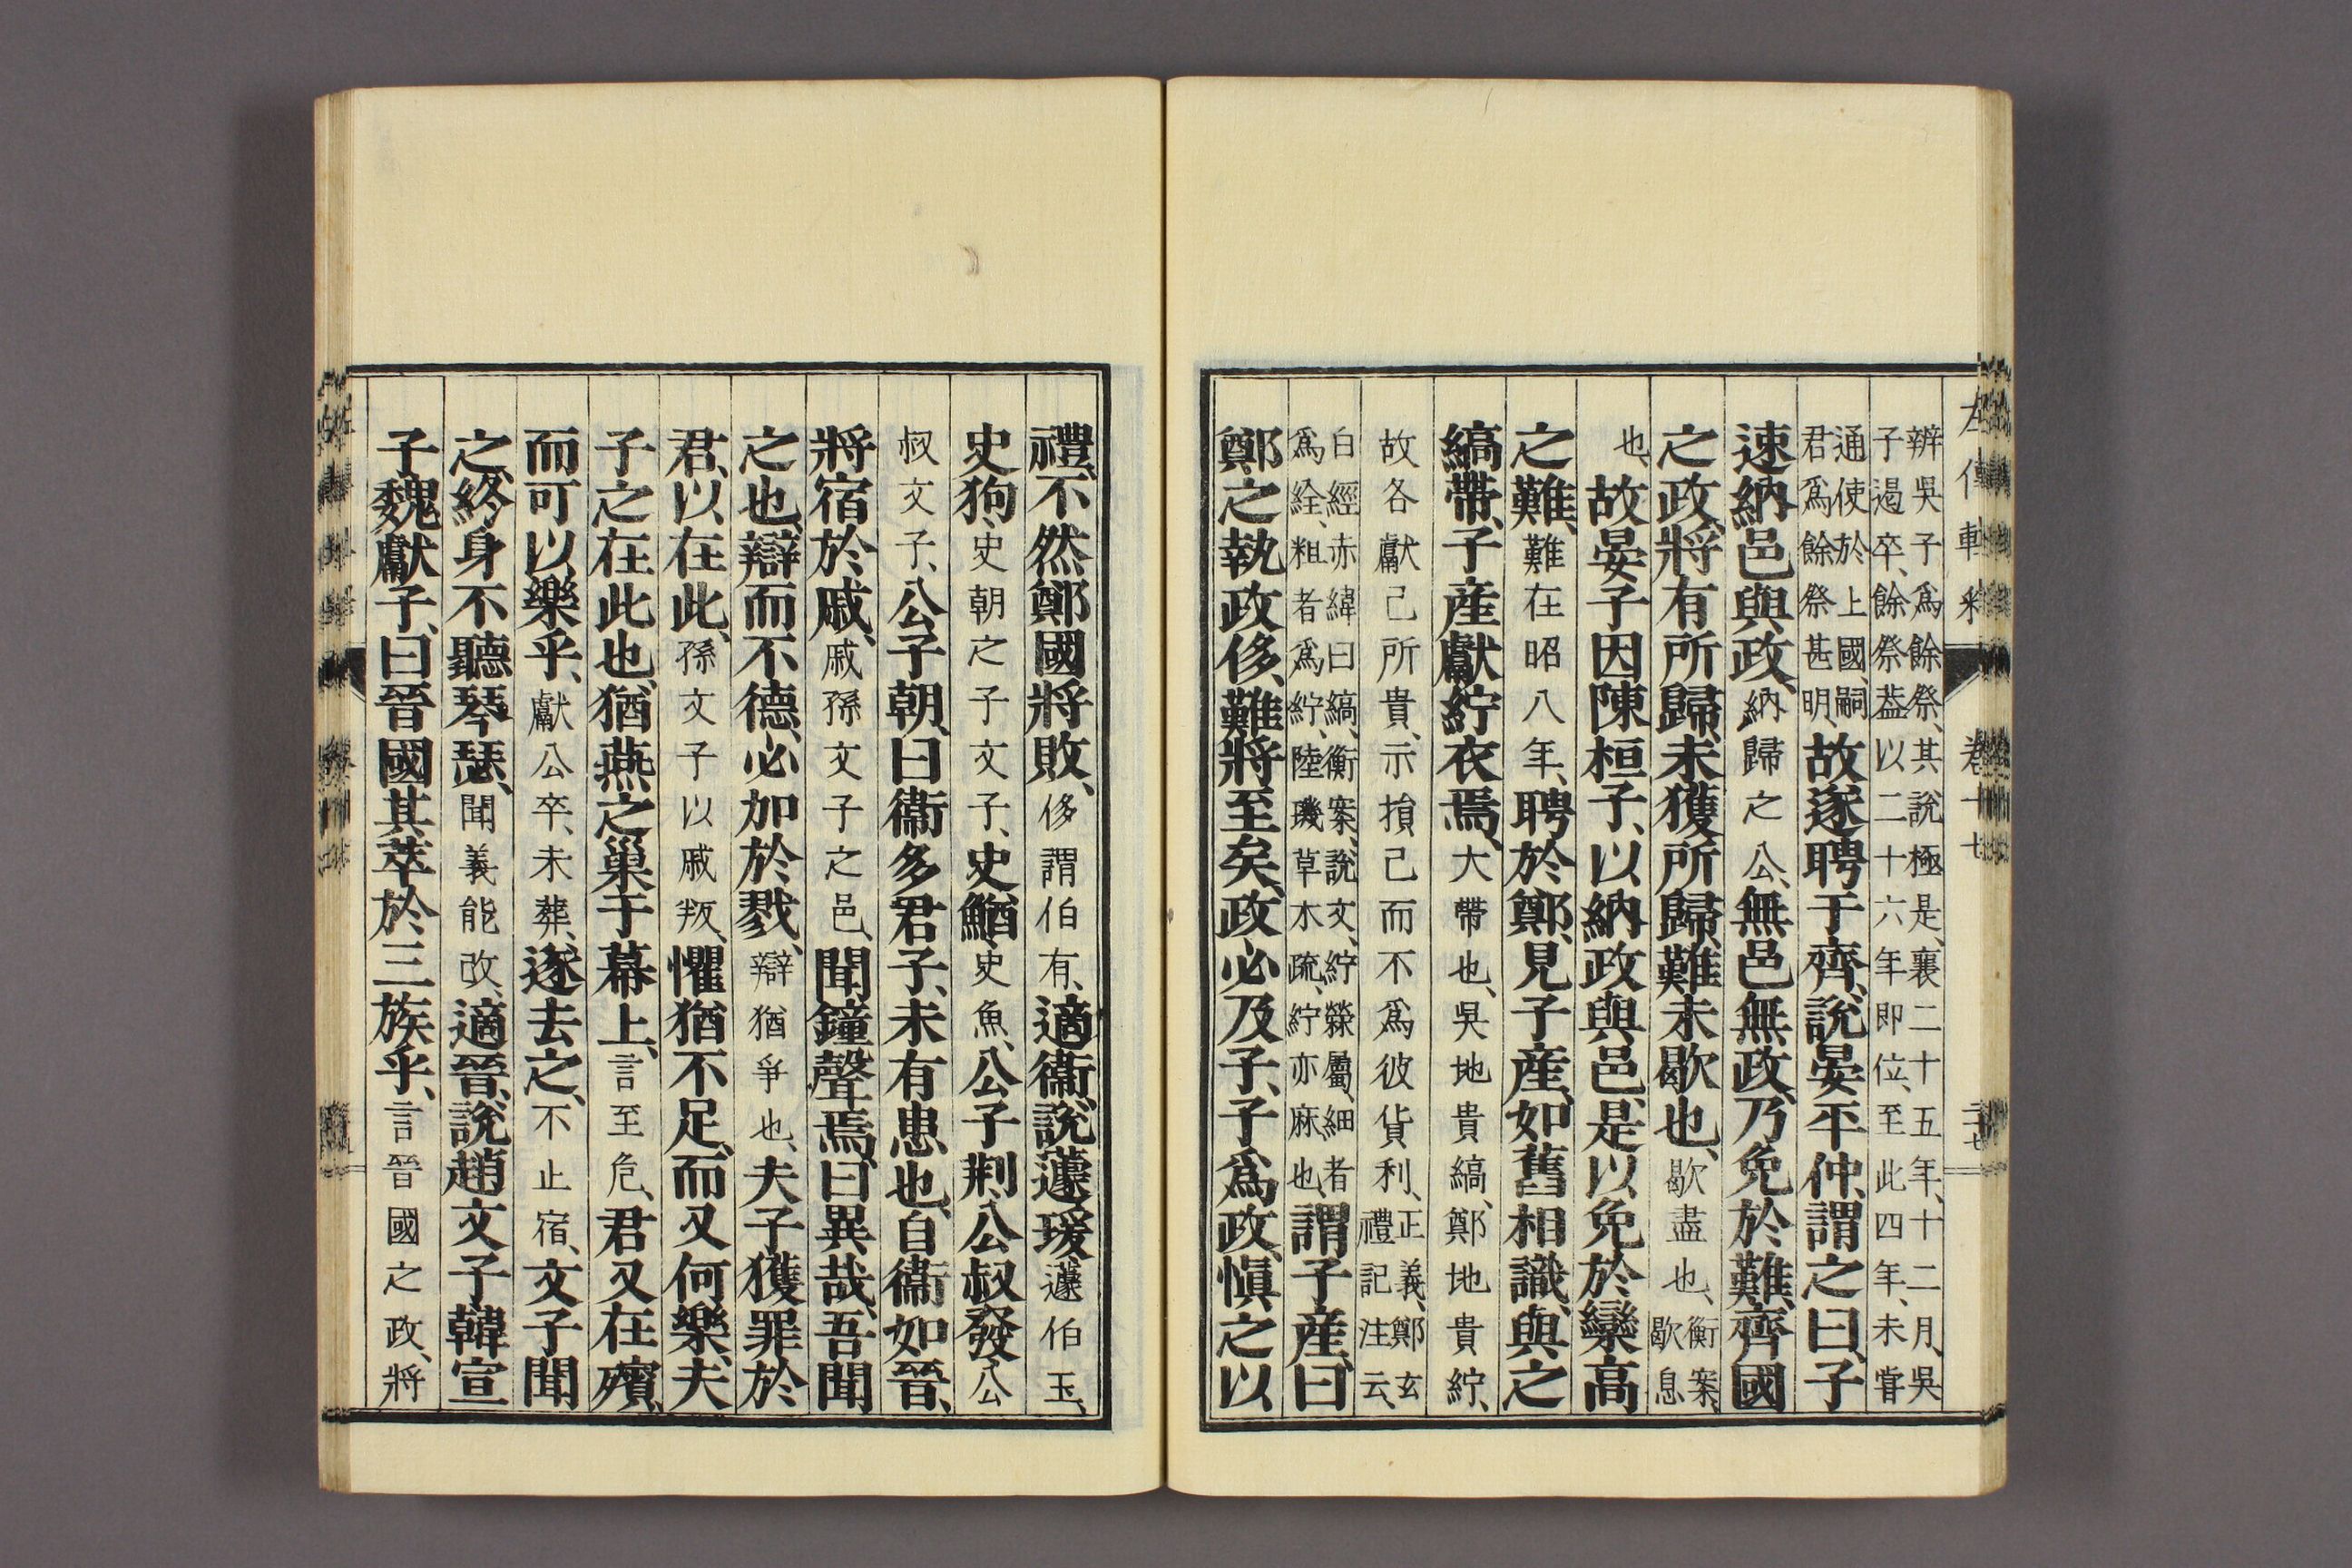 左傳輯釋 卷十七 二十七
辨吳子爲餘祭、其說極是、襄二十五年、十二月、吳
子遏卒、餘祭葢以二十六年即位、至此四年、未嘗
通使於上國、嗣
君爲餘祭甚明、故遂聘于齊、說晏平仲、謂之曰、子
速納邑與政、納歸之公、無邑無政、乃免於難、齊國
之政、將有所歸、未獲所歸、難未歇也、歇盡也、衡案、
歇息
也、故晏子因陳桓子、以納政與邑、是以免於欒高
之難、難在昭八年、聘於鄭、見子產、如舊相識、與之
縞帶、子產獻紵衣焉、大帶也、吳地貴縞、鄭地貴紵、
故各獻己所貴、示損己而不爲彼貨利、正義、鄭玄
禮記注云、
白經赤緯曰縞、衡案、說文、紵檾屬、細者
爲絟、粗者爲紵、陸璣草木疏、紵亦麻也、謂子產曰
鄭之執政侈、難將至矣、政必及子、子爲政、愼之以
禮、不然鄭國將敗、侈謂伯有、適衞、說蘧瑗、蘧伯玉、
史狗、史朝之子文子、史鰌、史魚、公子荆、公叔發、公
叔文子、公子朝、曰衞多君子、未有患也、自衞如晉、
將宿於戚、戚孫文子之邑、聞鐘聲焉、曰異哉、吾聞
之也、辯而不德、必加於戮、辯猶爭也、夫子獲罪於
君、以在此、孫文子以戚叛、懼猶不足、而又何樂、夫
子之在此也、猶燕之巢于幕上、言至危、君又在殯、
而可以樂乎、獻公卒、未葬、遂去之、不止宿、文子聞
之、終身不聽琴瑟、聞義能改、適晉、說趙文子韓宣
子魏獻子、曰晉國其萃於三族乎、言晉國之政、將